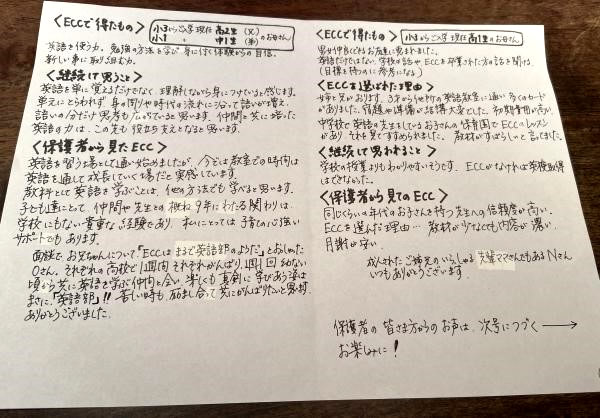 <ECCで得たもの>
小3からご入学 現在 高2生(父)
小1 〃 中1生(弟)
のお母さん
英語を使う力。勉強の方法を学び 身に付く体験からの自信。
新しい事に取り組む力。
<継続して思うこと>
英語を単に覚えるだけでなく、理解しながら身につけていると感じます。
単元にとらわれず、身の周りや時代の流れに沿って語いが増え、
語いの分だけ思考も広がっていると思います。仲間と共に培った
英語の力は、この先も役立つ支えとなると思います。
<保護者から見たECC>
英語を習う場として通い始めましたが、今では教室での時間は
英語を通して成長していく場だと実感しています。
教科として英語を学ぶことは、他の方法でも学べると思います。
子ども達にとって、仲間や先生との概ね9年にわたる関わりは、
学校にもない貴重な経験であり、私にとっては子育ての心強い
サポートでもあります。
面談で、お兄ちゃんについて「ECCはまるで英語部のようだ」とおっしゃった
Oさん。それぞれの高校で1週間それぞれがんばり、1週1回 幼ない
頃から共に英語を学ぶ仲間と会い、楽しくも真剣に学びあう姿は
まさに、「英語部」!! 苦しい時も、励まし合って共にがんばりたいと思います。
ありがとうございました。
<ECCで得たもの>
小3からご入学 現在 高1生のお母さん
男女仲良くできるお友達に恵まれました。
英語だけではない、学校の話やECCを卒業された方の話を聞ける。
(目標を持つのに参考になる)
<ECCを選ばれた理由>
姉と兄がおります。3才から他の英語教室に通い多くのカードが
ありました。宿題や準備が結構大変でした。初期費用が高い。
中学校で英語の先生をしているお母さんの保育園でECCのレッスン
があり、それを見てすすめられました。教材がすばらしいと言ってました。
<継続して思われること>
学校の授業よりもわかりやすいそうです。ECCがなければ英検取得
はできなかった。
<保護者から見てのECC>
同じくらいの年代のお子さんを持つ先生への信頼度が高い。
ECCを選んだ理由… 教材が少なくても内容が濃い。
月謝が安い
成人されたご姉兄のいらっしゃる先輩ママさんでもあるNさん
いつもありがとうございます。
保護者の皆さま方からのお声は、次号につづく→
お楽しみに!